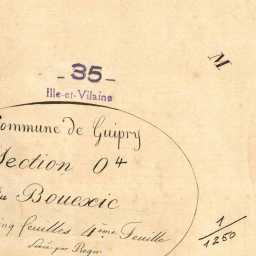 - 35 -
Ille-et-Vilaine
M
Commune de Guipry
Section O4
du Bouexic
cinq feuilles 4ème Feuille
Levée par Roger
1/1250